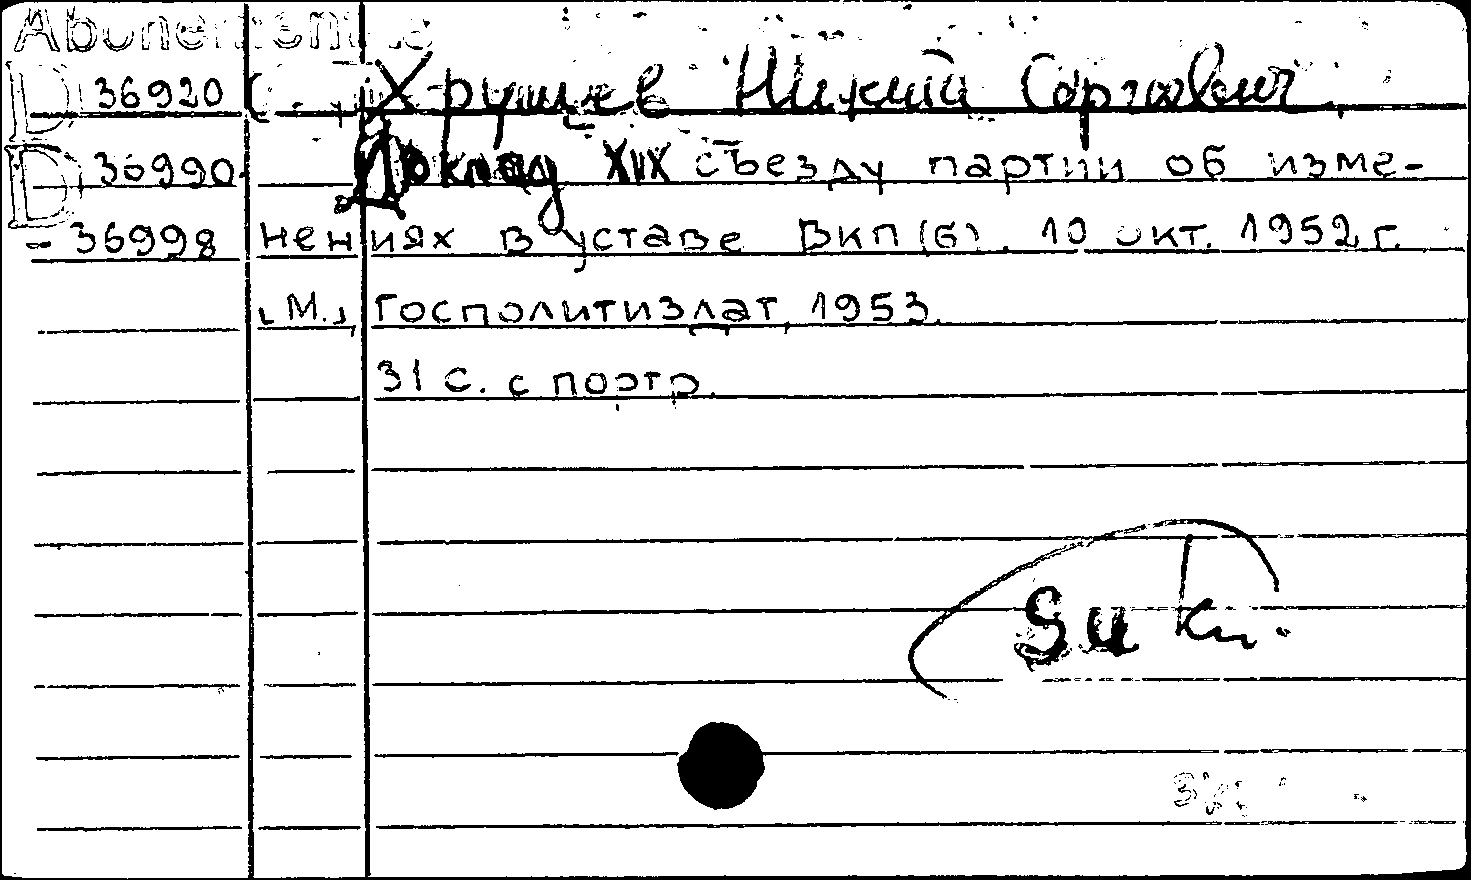 Abonements
В 36920 Хрущев Никита Сергеевич.
В 36990 Доклад XIX съезду партии об изме-
- 36998 нениях в уставе ВКП(б). 10 окт. 1952 г.
[М.], Госполитиздат, 1953.
31 с. с портр.